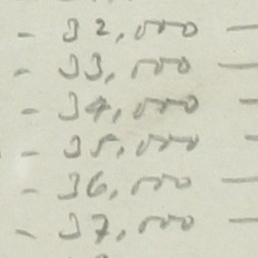 - 32,000 -
- 33,000 -
- 34,000 -
- 35,000 -
- 36,000 -
- 37,000 -